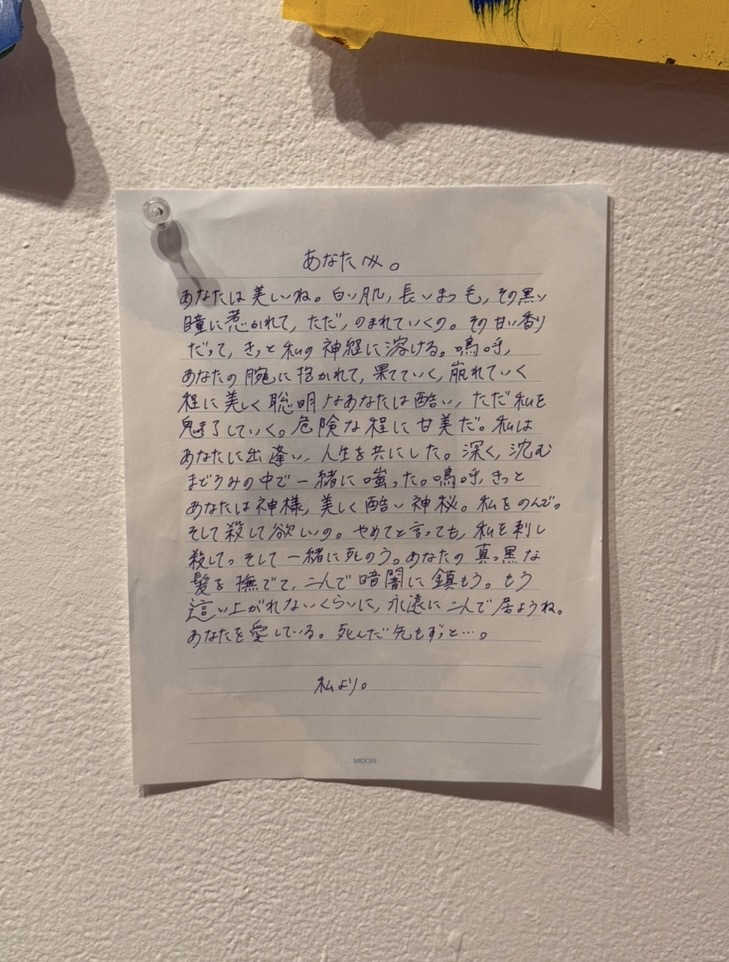 あなたへ。
あなたは美しいね。白い肌，長いまつ毛，その黒い
瞳に惹かれて，ただ，のまれていくの。その甘い香り
だって，きっと私の神経に溶ける。嗚呼，
あなたの腕に抱かれて，果てていく，崩れていく
程に美しく聡明なあなたは酷い，ただ私を
魅了していく。危険な程に甘美だ。私は
あなたに出逢い，人生を共にした。深く，沈む
まどろみの中で一緒に嗤った。嗚呼，きっと
あなたは神様，美しく酷い神秘。私をのんで。
そして殺して欲しいの。やめてと言っても，私を刺し
殺して。そして一緒に死のう。あなたの真っ黒な
髪を撫でて，二人で暗闇に鎮もう。もう
這い上がれないくらいに，永遠に二人で居ようね。
あなたを愛している。死んだ先もずっと…。
私より。
MIDORI